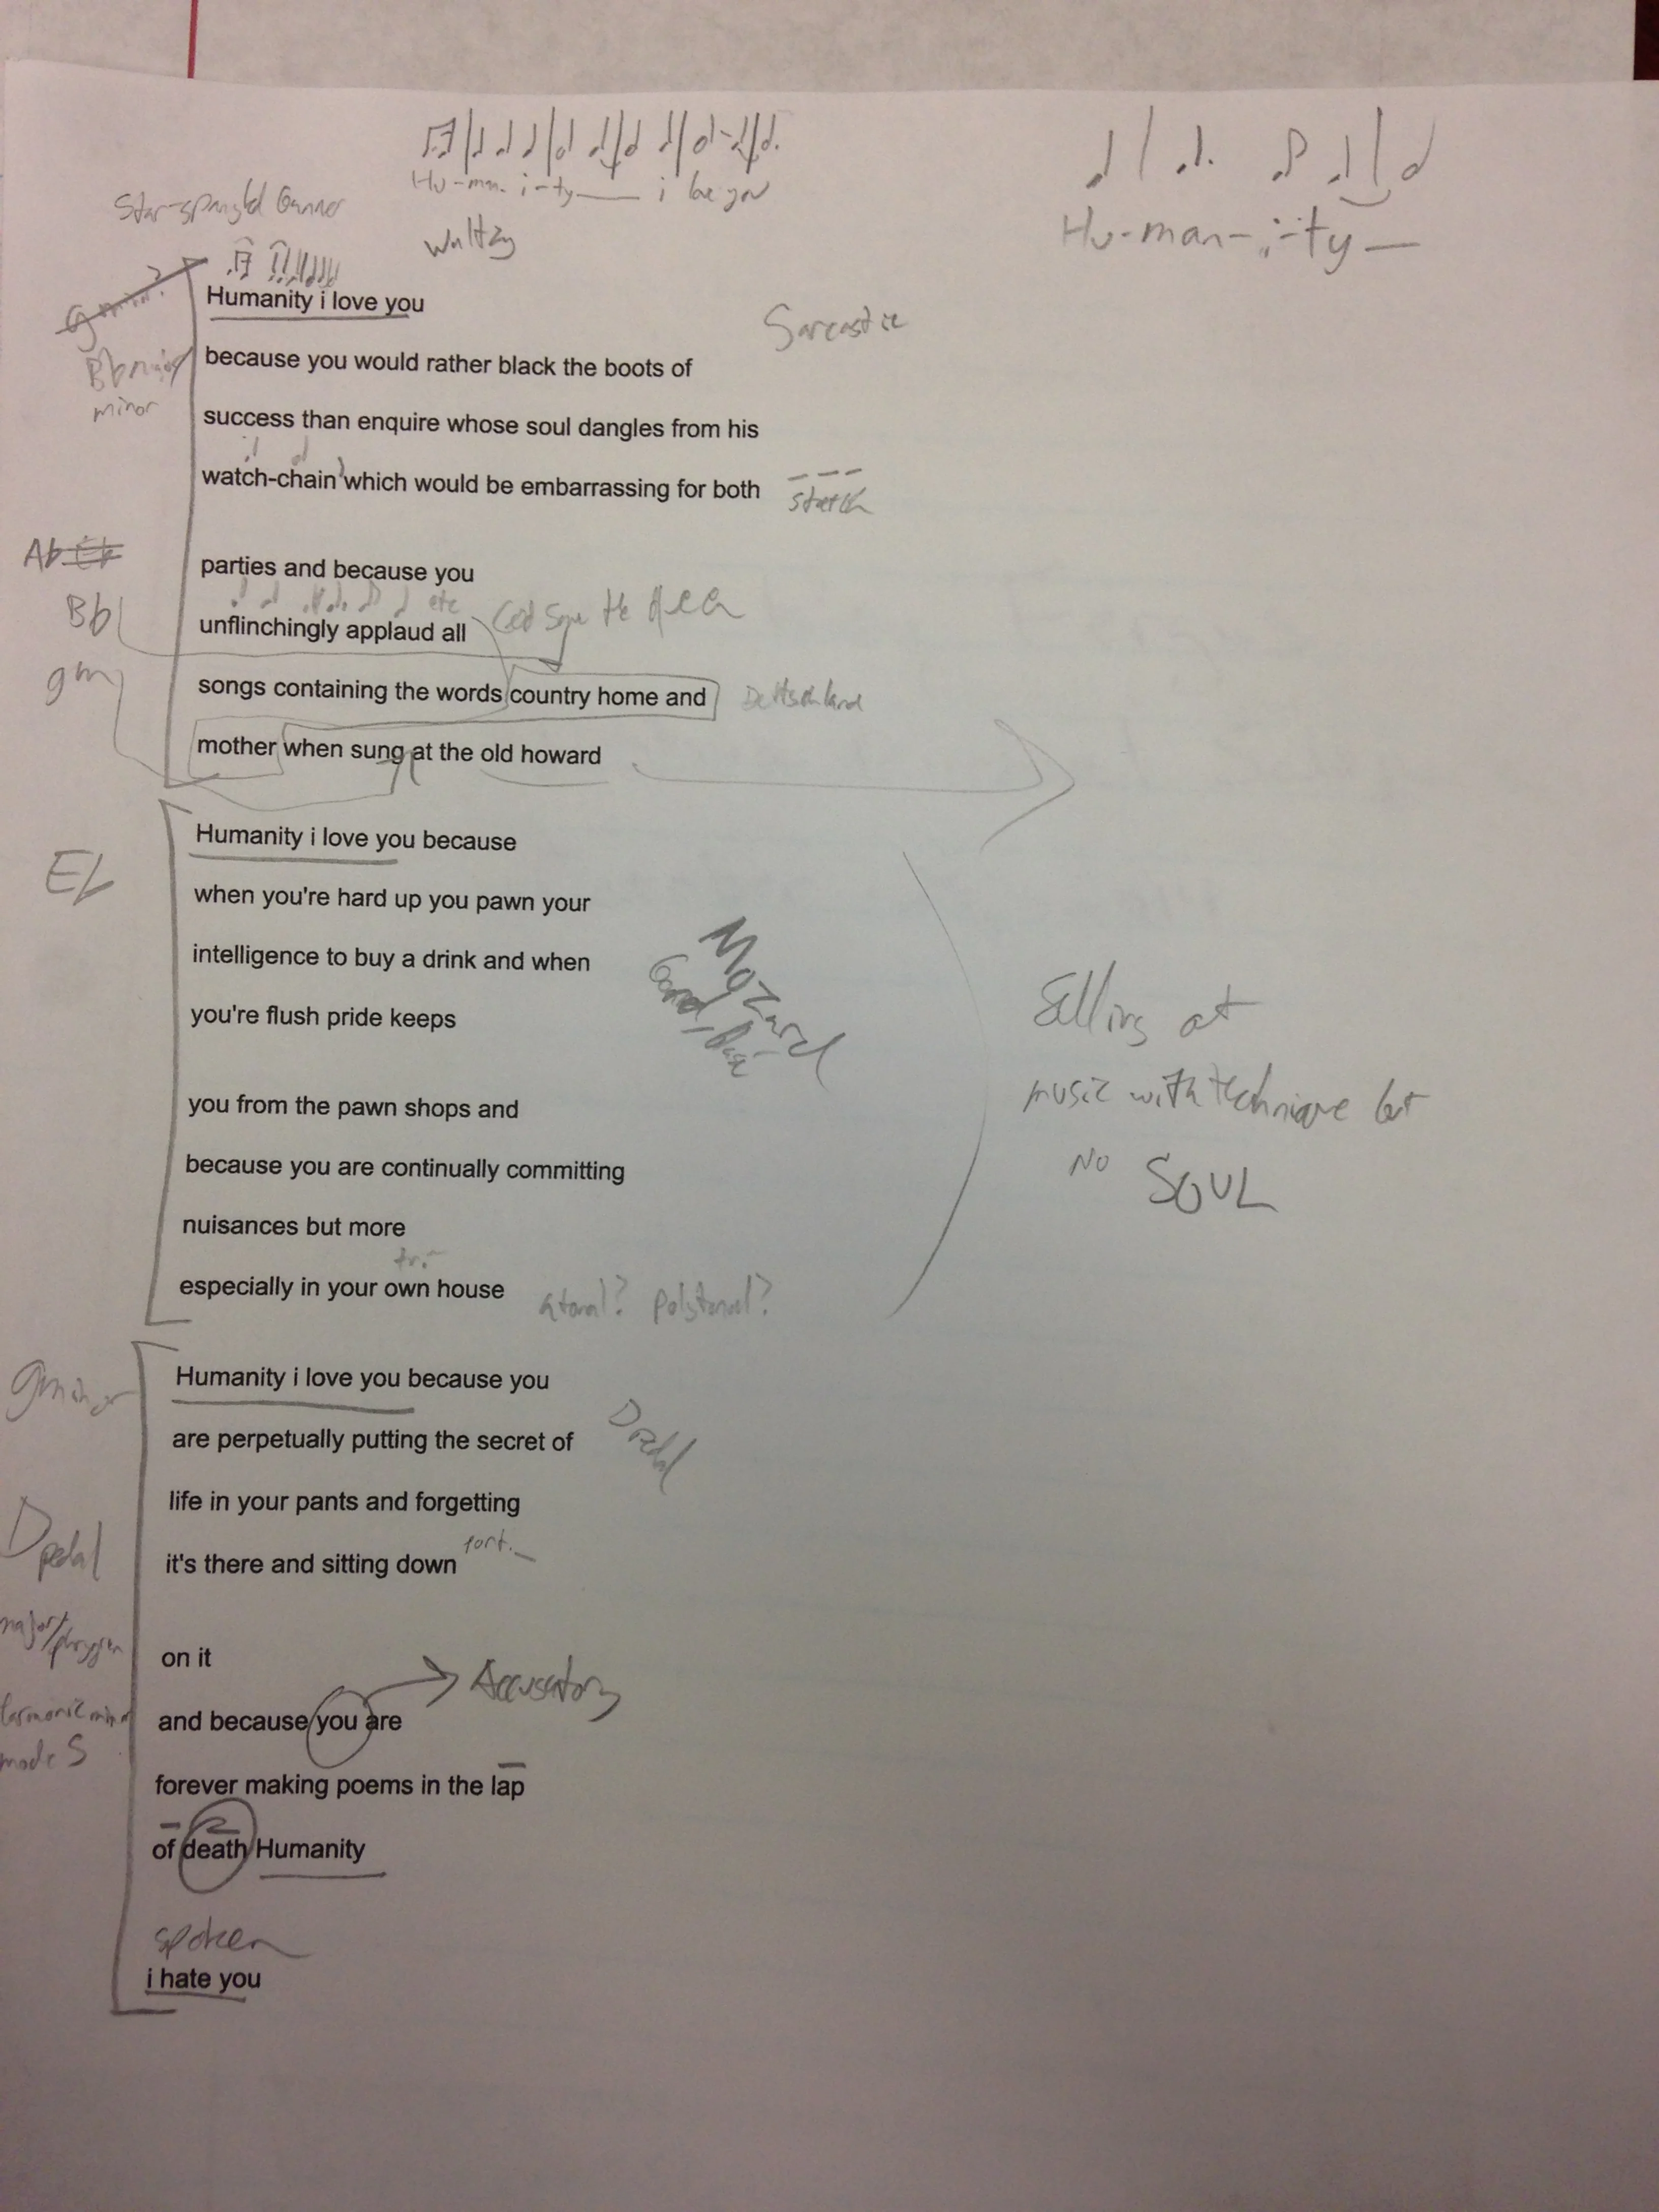 Hu-man-i-ty i love you
Hu-man-i-ty
Star-spangld Banner
Waltzy
g minor?
Humanity i love you
Sarcastic
Bb major/
minor
because you would rather black the boots of
success than enquire whose soul dangles from his
watch-chain which would be embarrassing for both
Ab Eb
parties and because you
Bb
etc
God save the
unflinchingly applaud all
gm
songs containing the words country home and
Deutschland
mother when sung at the old howard
Humanity i love you because
Eb
when you're hard up you pawn your
intelligence to buy a drink and when
you're flush pride keeps
at
music with technique but
no SOUL
you from the pawn shops and
because you are continually committing
nuisances but more
tr.
especially in your own house
atonal? polytonal?
g minor
Humanity i love you because you
are perpetually putting the secret of
life in your pants and forgetting
D pedal
port.
it's there and sitting down
major/phrygian
on it
Accusatory
harmonic minor
mode 5
and because you are
forever making poems in the lap
of death Humanity
spoken
i hate you